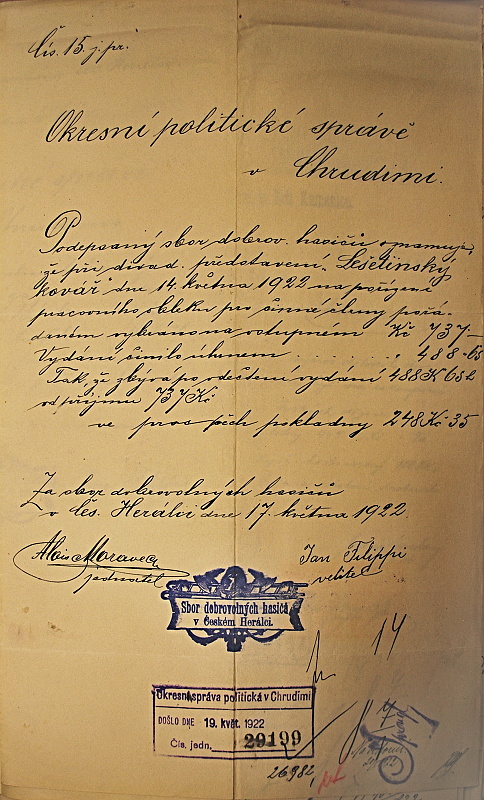 Čís. 15. j. pr.
Okresní politické správě
v Chrudimi.
Podepsaný sbor dobrov. hasičů oznamuje,
že při divad. představení „Lešetínský
kovář" dne 14. května 1922 na pořízení
pracovního obleku pro činné členy pořá-
daném vybráno na vstupném Kč 737-
Vydání činilo úhrnem . . . . . , 488-65
Tak, že zbývá po odečtení vydání 488 K 65
od příjmu 737 Kč
ve prospěch pokladny 248 Kč 35
Za sbor dobrovolných hasičů
v Čes. Herálci dne 17. května 1922.
Alois Moravec Jan Filippi
jednatel velitel
Sbor dobrovolných hasičů
v Českém Herálci.
14
Okresní správa politická v Chrudimi
DOŠLO DNE 19. květ. 1922
Čís. jedn. 29199
26982